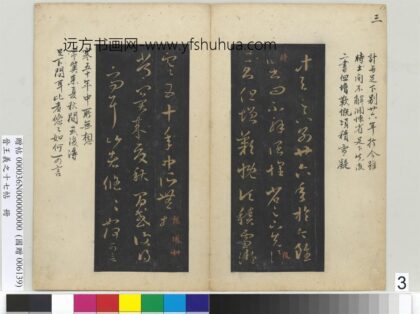 远方书画网 www.yfshuhua.com
三
計與足下別廿六年於今雖
時書問不解闊懷省足下先後
二書但增歎慨頃積雪凝
計與足下別廿六年於今雖
時書問不解闊懷省足下先後
二書但增歎慨頃積雪凝
寒五十年中所無想頃如
常冀來夏秋間或復得
足下問耳比者悠悠如何可言
寒五十年中所無想
頃如常冀來夏秋間或復得
足下問耳比者悠悠如何可言
贈帖 000036N000000000 (國贈 006139)
晉王羲之十七帖 冊
3